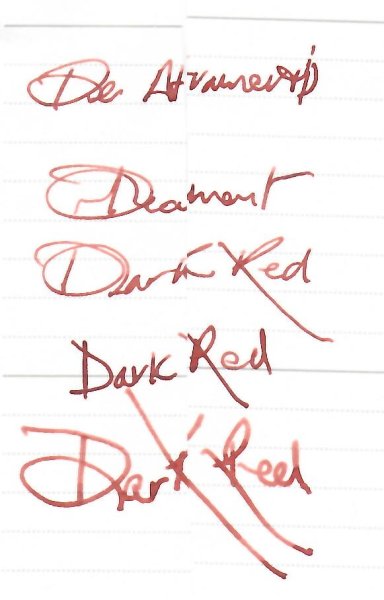 De Atramentis
Document
Dark Red
Dark Red
Dark Red